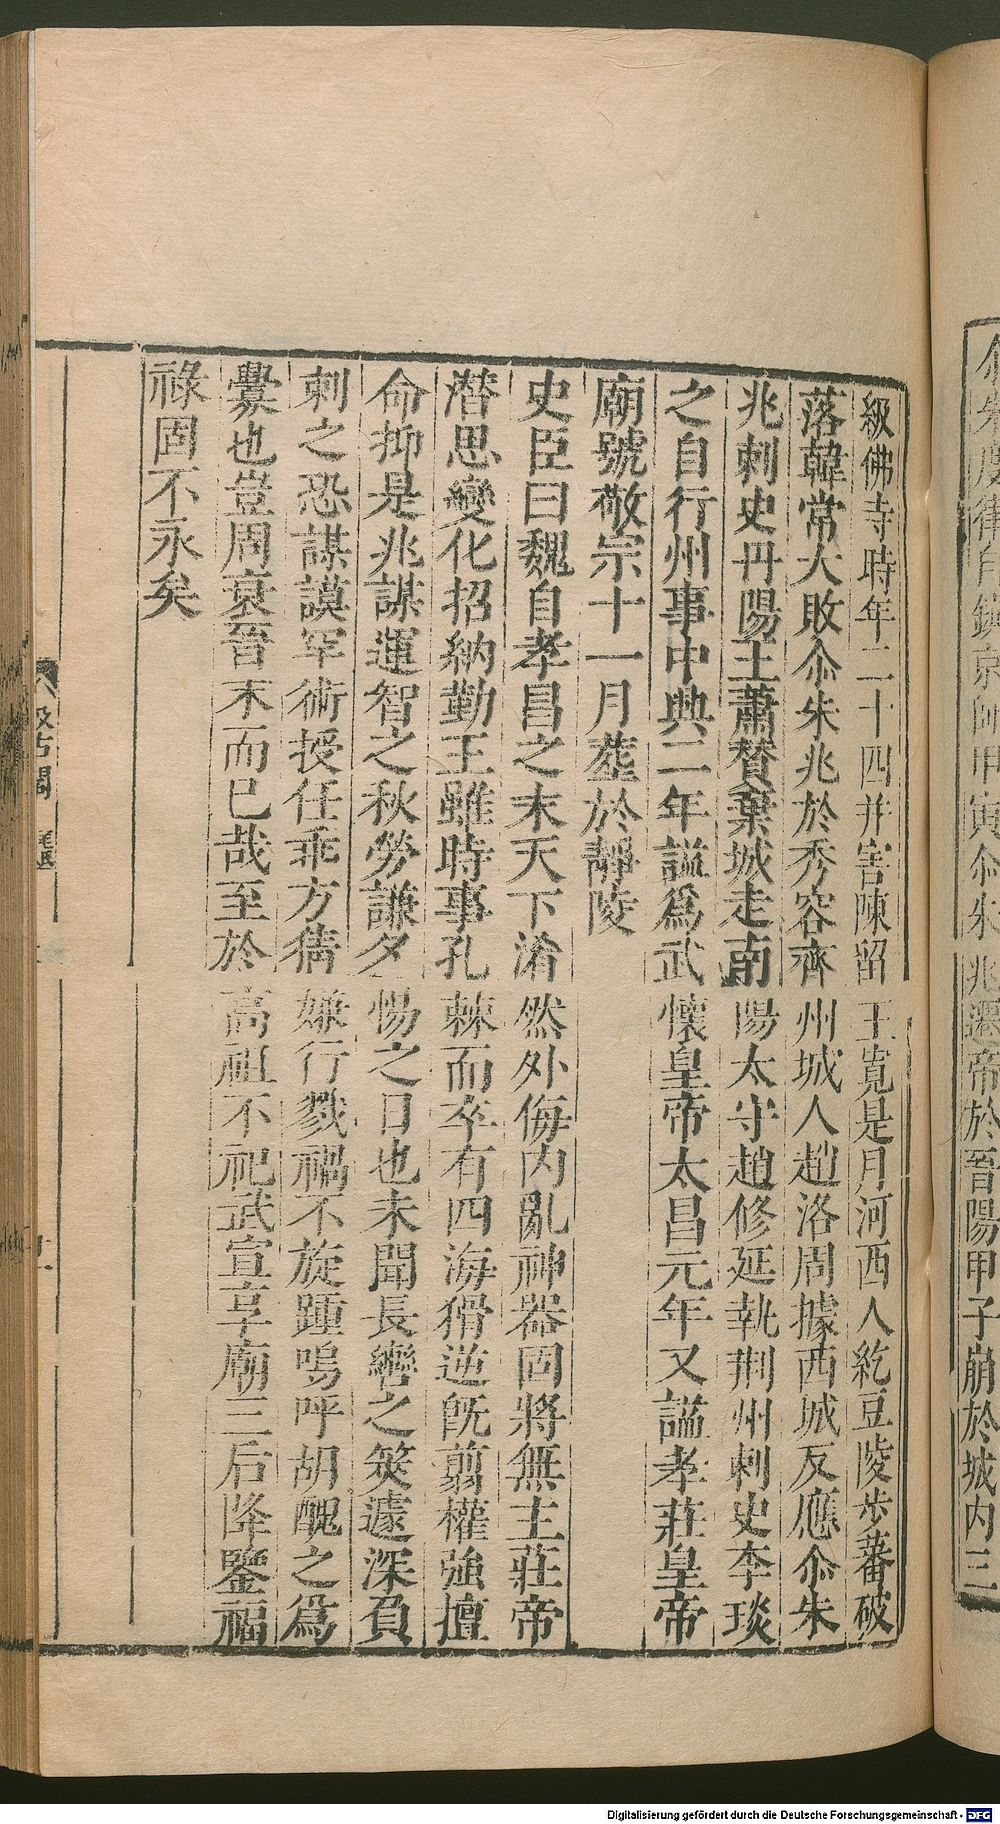 尒朱兆遷帝於晉陽甲子崩於城内三
級佛寺時年二十四并害陳留王寬是月河西人紇豆陵步蕃破
落韓常大敗尒朱兆於秀容齊州城人趙洛周據西城反應尒朱
兆刺史丹陽王蕭贊棄城走南陽太守趙修延執荆州刺史李琰
之自行州事中興二年諡爲武懷皇帝太昌元年又諡孝莊皇帝
廟號敬宗十一月葬於靜陵
史臣曰魏自孝昌之末天下淆然外侮内亂神器固將無主莊帝
潛思變化招納勤王雖時事孔棘而卒有四海猾逆旣翦權強擅
命抑是兆謀運智之秋勞謙夕惕之日也未聞長轡之筴遽深負
刺之恐謀謨罕術授任乖方猜嫌行戮禍不旋踵嗚呼胡醜之爲
釁也豈周衰晉末而已哉至於高祖不祀武宣享廟三后降鑒福
祿固不永矣
汲古閣
Digitalisierung gefördert durch die Deutsche Forschungsgemeinschaft - DFG